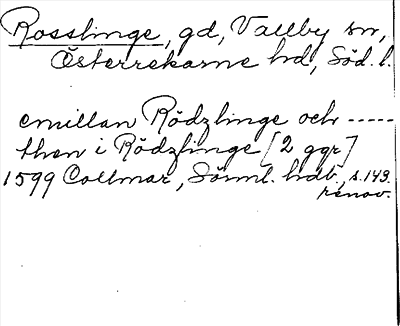 Rosslinge, gd, Vallby sn,
Österrekarne hd, Söd. l.
emillan Rödzlinge och -----
then i Rödzlinge [2 ggr]
1599 Collmar, Sörml. hdb, s. 149.
renov.